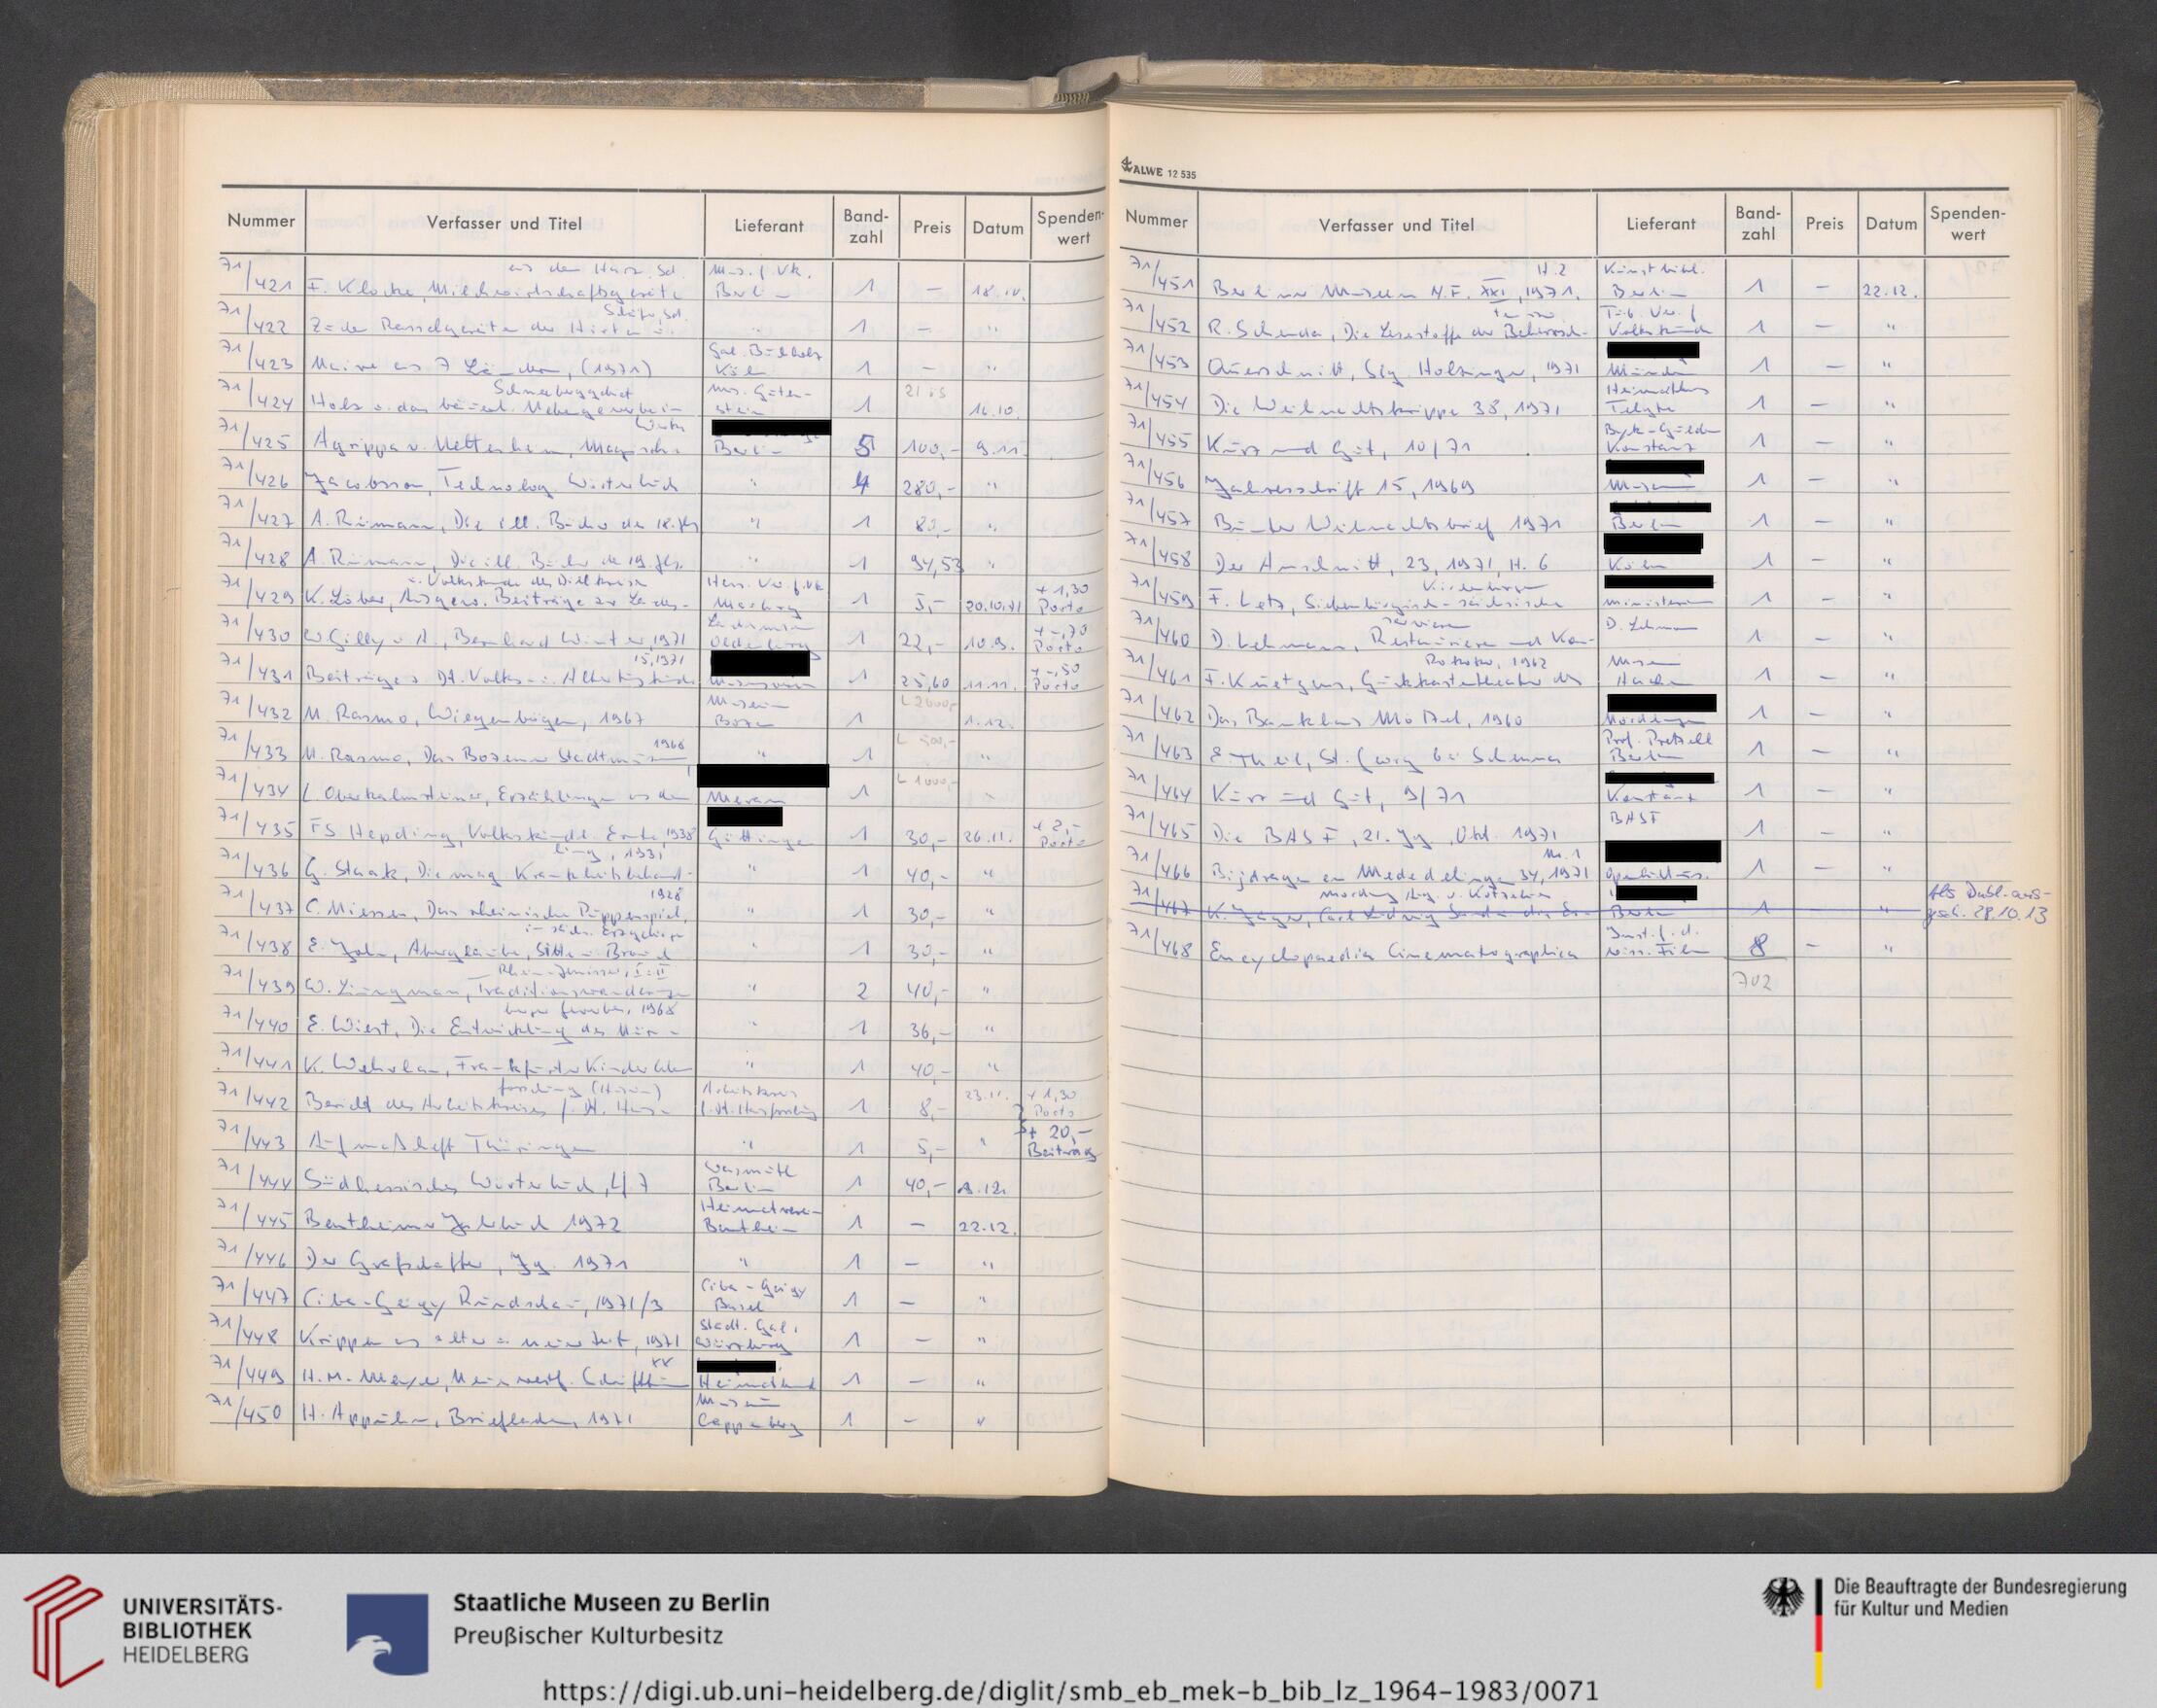 Nummer Verfasser und Titel Lieferant Band-zahl Preis Datum Spenden-wert
aus dem Harz, Sd. Mus. f. Vk.
71/421 F. Klocke, Milchwirtschaftsgeräte Berlin 1 –
71/422 Zu den Rasselgeräten der Hirten u. " 1 – "
71/423 (1971) Köln 1 – "
Schneeberggebiet Mus. Guten-
71/424 Holz u. das bäuerl. Nebengewerbe im stein 1 16.10.
Werke
71/425 Agrippa v. Nettesheim, Magische Berlin 5 100,– 9.11.
71/426 Jacobsson, Technolog. Wörterbuch " 4 280,– "
71/427 A. Rümann, Die ill. Bücher des 18. Jhs " 1 80,– "
71/428 A. Rümann, Die ill. Bücher des 19. Jhs. " 1 94,53 "
u. Volkskunde des Dillkreises Hess. Ver. f. Vk + 1,30
71/429 K. Löber, Ausgew. Beiträge zur Landes- Marburg 1 5,– 20.10.71 Porto
+ –,70
71/430 W. Gilly u. A., Bernhard Winter, 1971 Oldenburg 1 22,– 10.9. Porto
15, 1971 + –,50
71/431 Beiträge z. Dt. Volks- u. Altertumskunde 1 25,60 11.11. Porto
Museum L 2000,-
71/432 N. Rasmo, Wiegenbögen, 1967 Bozen 1 1.12.
1968 L 500,-
71/433 N. Rasmo, Das Bozener Stadtmuseum " 1 "
L 1000,-
71/434 Erzählungen aus dem Meran 1 "
+ 2,–
71/435 FS Hepding, Volkskundl. Ernte, 1938 Göttingen 1 30,– 26.11. Porto
lung, 1931
71/436 G. Staak, Die mag. Krankheitsbehand- " 1 40,– "
1928
71/437 C. Niessen, Das rheinische Puppenspiel, " 1 30,– "
im sächs. Erzgebirge
71/438 E. John, Aberglaube, Sitte u. Brauch " 1 30,– "
Rhein-Jenissei, I u. II
71/439 W. Liungman, Traditionswanderungen " 2 40,– "
berger Gewerbes, 1968
71/440 E. Wiest, Die Entwicklung des Nürn- " 1 36,– "
71/441 K. Wehrhan, Frankfurter Kinderleben " 1 40,– "
forschung (Husum) Arbeitskreis 23.11. + 1,30
71/442 Bericht des Arbeitskreises f. dt. Haus- f. dt. Hausforschung 1 8,– Porto
+ 20,–
71/443 Aufmaßheft Thüringen " 1 5,– " Beitrag
Wasmuth
71/444 Südhessisches Wörterbuch, Berlin 1 40,–
Heimatverein
71/445 Bentheimer Jahrbuch 1972 Bentheim 1 – 22.12.
71/446 Der Grafschafter, Jg. 1971 " 1 – "
Ciba-Geigy
71/447 Ciba-Geigy Rundschau, 1971/3 Basel 1 – "
Städt. Gal.
71/448 Krippen aus alter u. neuer Zeit, 1971 Würzburg 1 – "
71/449 H. M. Meyer, Neues westf. Schrifttum 1 – "
Museum
71/450 H. Appuhn, Briefladen, 1971 Cappenberg 1 – "
ALWE 12 535
Nummer Verfasser und Titel Lieferant Band-zahl Preis Datum Spenden-wert
H. 2 Kunstbibl.
71/451 Berliner Museen N. F. XXI, 1971. Berlin 1 – 22.12.
71/452 R. Schenda, Die Lesestoffe der Beherrsch- Volkskunde 1 – "
71/453 Querschnitt, Slg. Holzinger, 1971 München 1 – "
Heimathaus
71/454 Die Weihnachtskrippe 38, 1971 Telgte 1 – "
Byk-Gulden
71/455 Kurz und Gut, 10/71 Konstanz 1 – "
71/456 Jahresschrift 15, 1969 Museum 1 – "
71/457 Bunter Weihnachtsbrief 1971 Berlin 1 – "
71/458 Der Anschnitt, 23, 1971, H. 6 Köln 1 – "
Kirchenburgen
71/459 F. Letz, Siebenbürgisch-sächsische Ministerium 1 – "
servieren D. Lehmann
71/460 D. Lehmann, Restaurieren und Kon- 1 – "
Rokoko, 1962 Museum
71/461 F. Kuetgens, Guckkastentheater des Aachen 1 – "
71/462 Das Bankhaus 1960 1 – "
Prof. Pretzell
71/463 E. Theil, St. Georg bei Schenna Berlin 1 – "
71/464 Kurz und Gut, 9/71 Konstanz 1 – "
BASF
71/465 Die BASF, 21. Jg., Okt. 1971 1 – "
Nr. 1
71/466 Bijdragen en Mededelingen 34, 1971 Openluchtmus. 1 – "
mordung v. Kotzebue Als Dubl. aus-
71/467 K. Jäger, Carl Ludwig Sand u. die Er- Berlin 1 " gesch. 28.10.13
Inst. f. d.
71/468 Encyclopaedia Cinematographica wiss. Film 8 – "
702
UNIVERSITÄTS-
BIBLIOTHEK
HEIDELBERG
Staatliche Museen zu Berlin
Preußischer Kulturbesitz
Die Beauftragte der Bundesregierung
für Kultur und Medien
https://digi.ub.uni-heidelberg.de/diglit/smb_eb_mek-b_bib_lz_1964-1983/0071